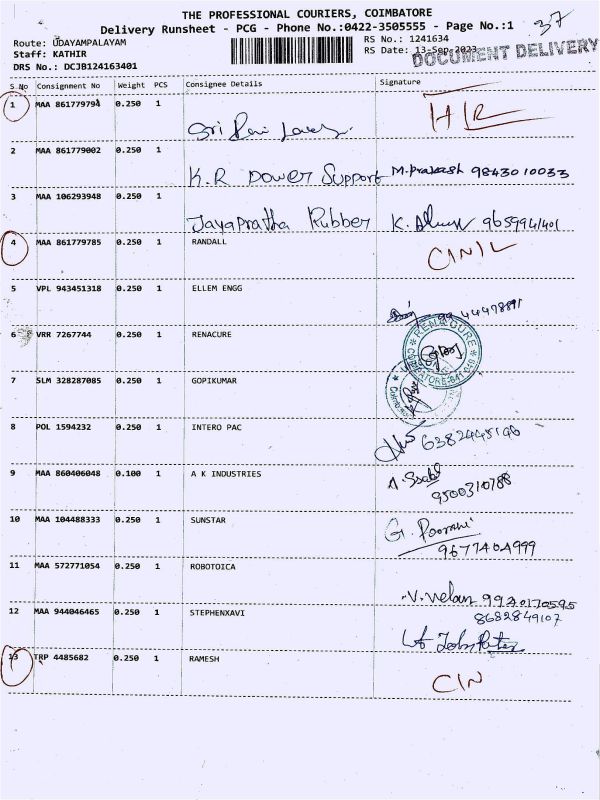 THE PROFESSIONAL COURIERS, COIMBATORE
Delivery Runsheet - PCG - Phone No.:0422-3505555 - Page No.:1
37
Route: UDAYAMPALAYAM
RS No.: 1241634
Staff: KATHIR
RS Date: 13-Sep-2023
DOCUMENT DELIVERY
DRS No.: DCJB124163401
S No Consignment No Weight PCS Consignee Details Signature
1 MAA 861779794 0.250 1
Sri
2 MAA 861779002 0.250 1
K.R power Support M.prakash 9843010033
3 MAA 106293948 0.250 1
Jayapratha Rubber K. 9659941401
4 MAA 861779785 0.250 1 RANDALL
5 VPL 943451318 0.250 1 ELLEM ENGG
6 VRR 7267744 0.250 1 RENACURE
RENACURE
COIMBATORE
7 SLM 328287085 0.250 1 GOPIKUMAR
8 POL 1594232 0.250 1 INTERO PAC
6382445196
9 MAA 860406048 0.100 1 A K INDUSTRIES
9500310788
10 MAA 104488333 0.250 1 SUNSTAR
G. Poorani
9677404999
11 MAA 572771054 0.250 1 ROBOTOICA
V. Velan 9920170595
12 MAA 944046465 0.250 1 STEPHENXAVI
8682849107
13 TRP 4485682 0.250 1 RAMESH
C/N